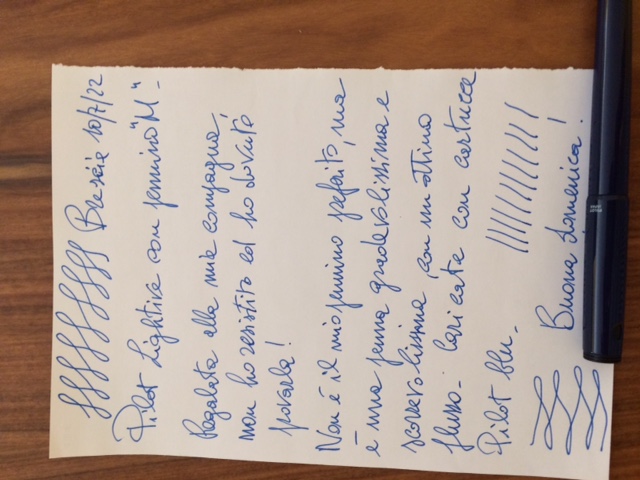 Brescia 10/7/22
Pilot Lightive con pennino "M" -
Regalata alla mia compagna,
non ho resistito ed ho dovuto
provarla!
Non è il mio pennino preferito, ma
è una penna gradevolissima e
scorrevolissima con un ottimo
flusso - Caricata con cartucce
Pilot blu -
Buona domenica!